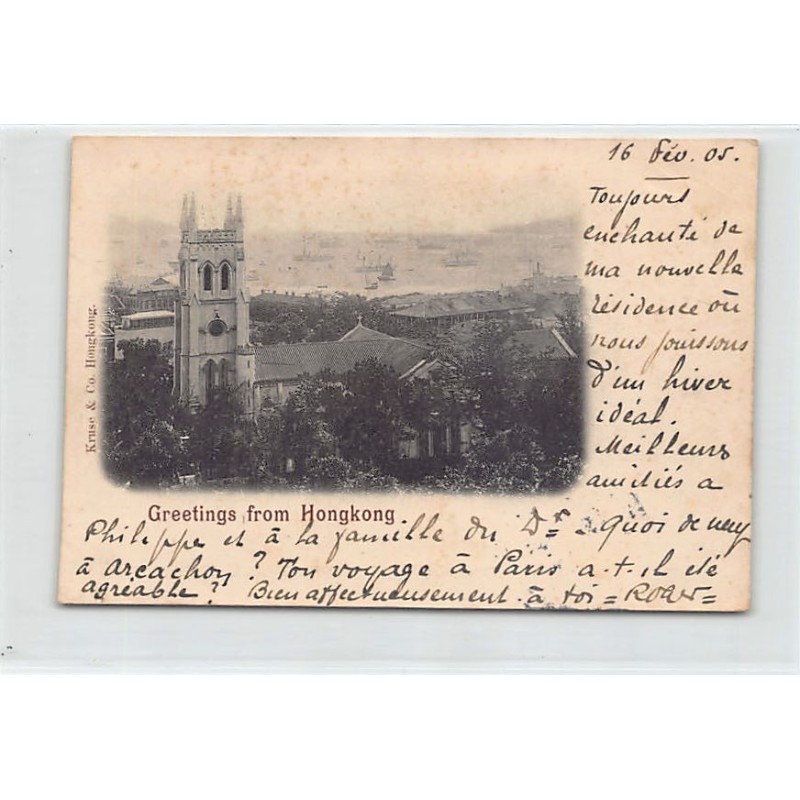 16 Fév. 05.
Toujours
enchanté de
ma nouvelle
résidence où
nous jouissons
d'un hiver
idéal.
Meilleurs
amitiés a
Kruse & Co. Hongkong.
Greetings from Hongkong
Philippe et à la famille du Dr - Quoi de neuf
à Arcachon ? Ton voyage à Paris a-t-il été
agréable ? Bien affectueusement à toi = Roger =